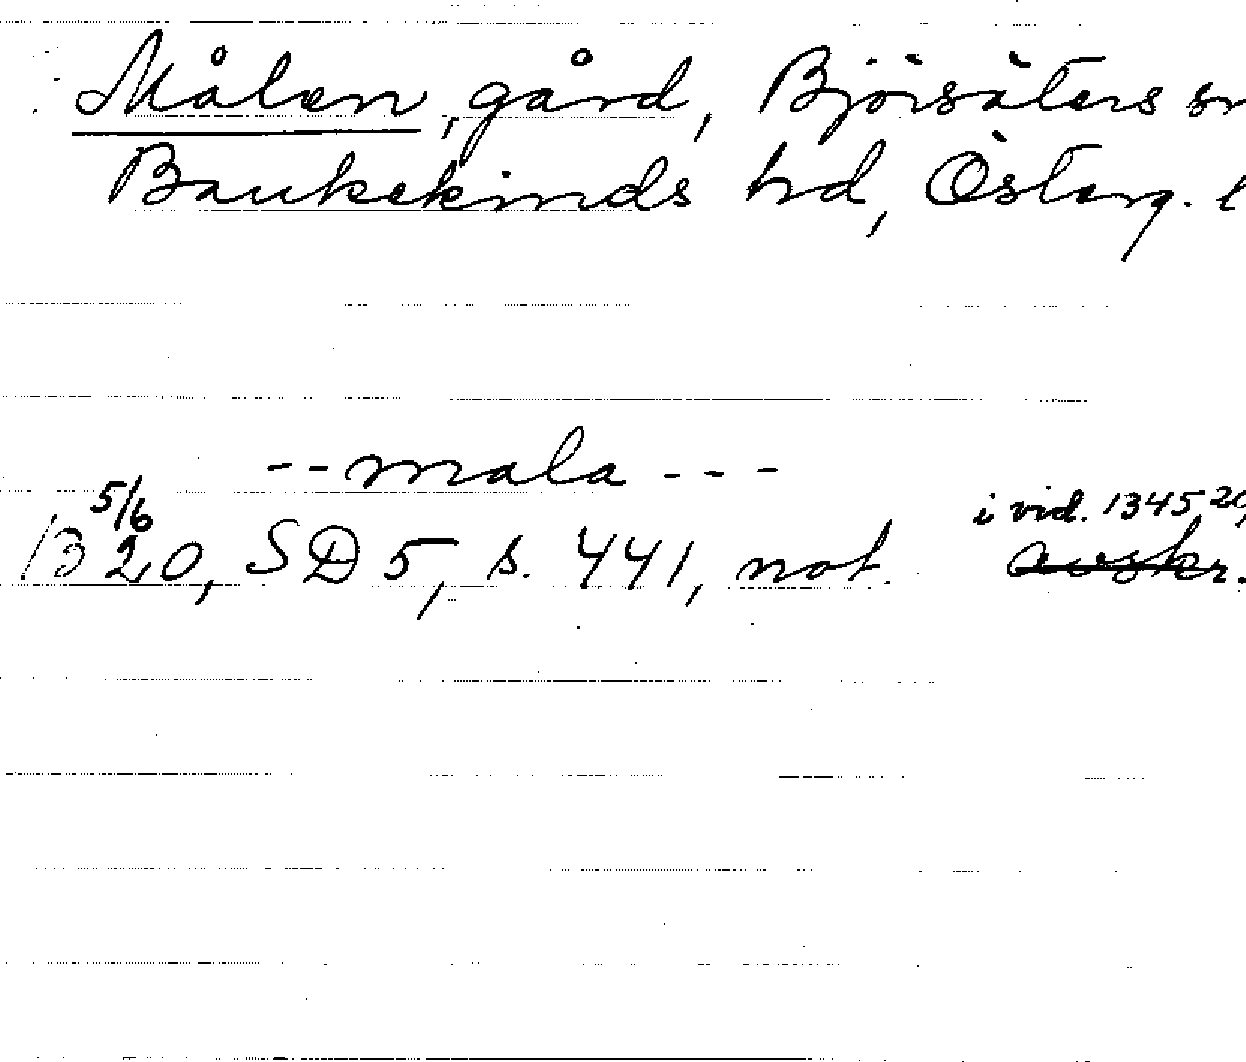 Målen, gård, Björsäters sn
Bankekinds hd, Österg. l
--mala---
5/6 i vid. 1345 20/
1320, SD 5, s. 441, not. avskr.